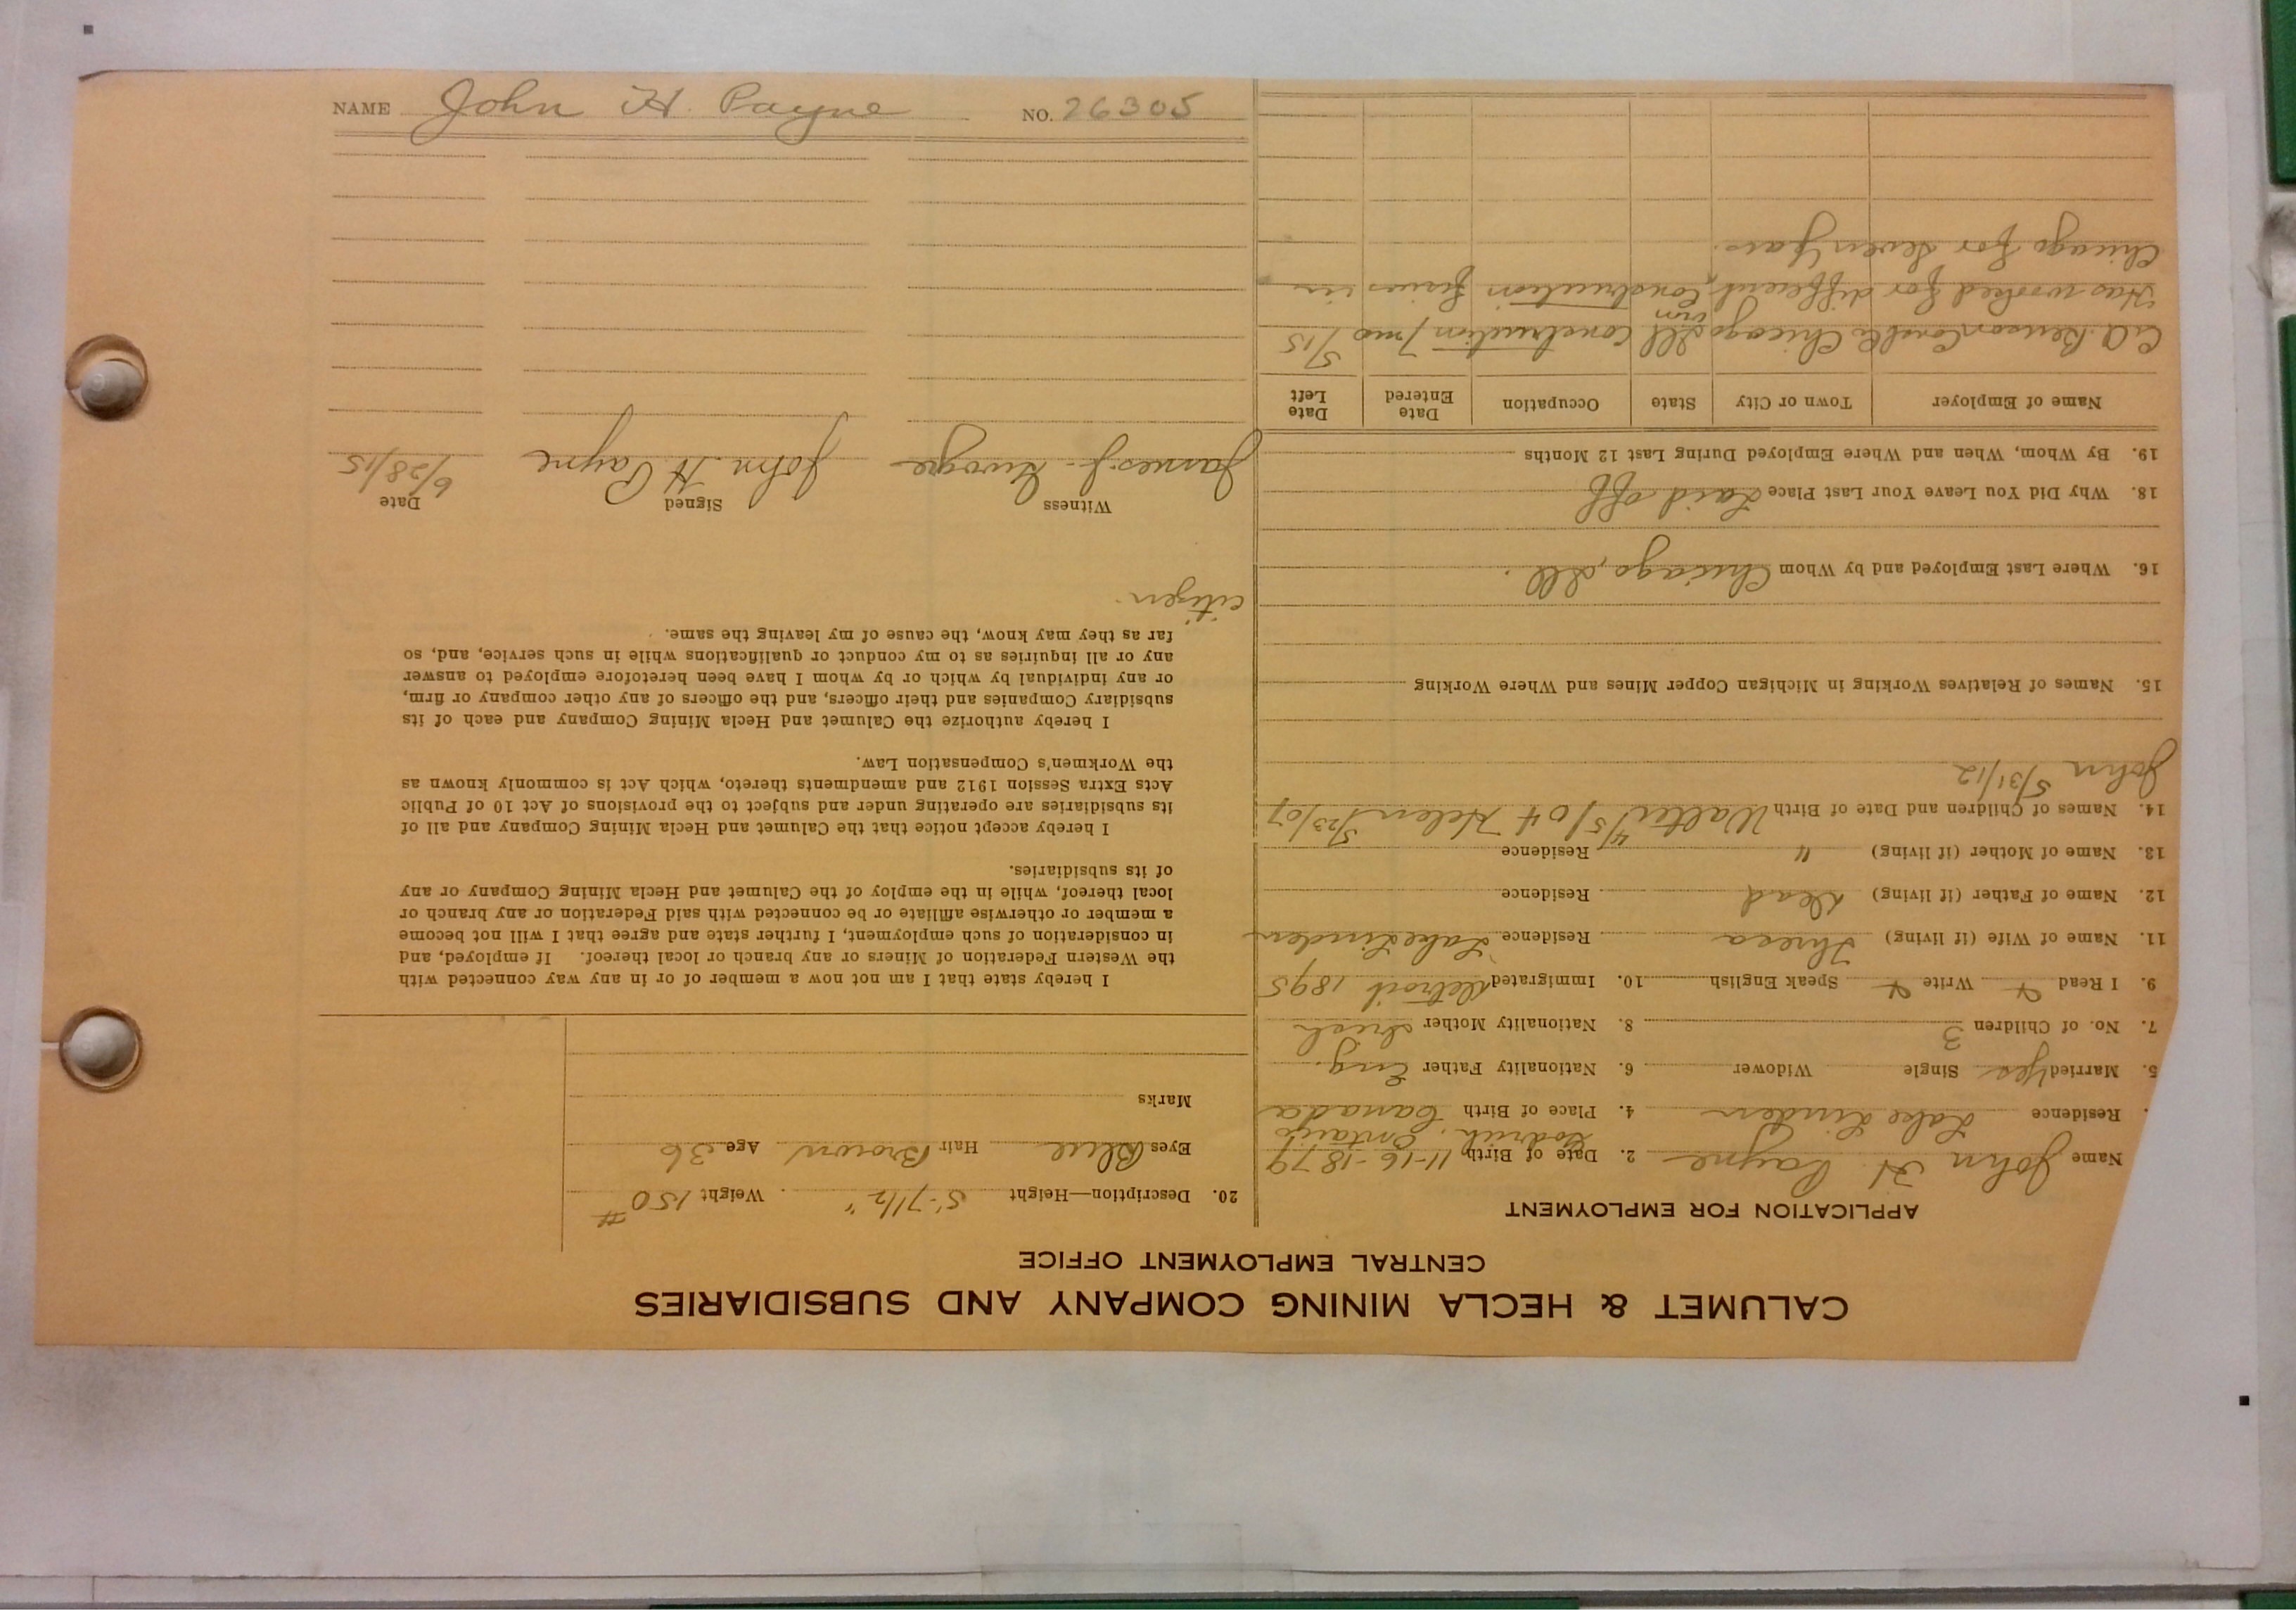 NAME John H. Payne NO. 26305
CALUMET & HECLA MINING COMPANY AND SUBSIDIARIES
CENTRAL EMPLOYMENT OFFICE
APPLICATION FOR EMPLOYMENT
Name John H. Payne 2. Date of Birth 11-16-1879
Godrich, Ontario
Residence Lake Linden 4. Place of Birth Canada
5. Married Yes Single Widower 6. Nationality Father Eng.
7. No. of Children 3 8. Nationality Mother Irish
9. I Read Write Speak English 10. Immigrated Detroit 1895
11. Name of Wife (if living) Residence Lake Linden
12. Name of Father (if living) Dead Residence
13. Name of Mother (if living) " Residence
14. Names of Children and Date of Birth Walter 4/5/04 Helen 5/23/07
John 5/31/12
15. Names of Relatives Working in Michigan Copper Mines and Where Working
16. Where Last Employed and by Whom Chicago, Ill.
18. Why Did You Leave Your Last Place Laid off
19. By Whom, When and Where Employed During Last 12 Months
Name of Employer Town or City State Occupation Date Entered Date Left
C.A. Chicago Ill Construction 7 mo 5/15
Has worked for different Iron Construction firms in
Chicago for seven years.
20. Description—Height 5'-7 1/2" Weight 150#
Eyes Blue Hair Brown Age 36
Marks
I hereby state that I am not now a member of or in any way connected with
the Western Federation of Miners or any branch or local thereof. If employed, and
in consideration of such employment, I further state and agree that I will not become
a member or otherwise affiliate or be connected with said Federation or any branch or
local thereof, while in the employ of the Calumet and Hecla Mining Company or any
of its subsidiaries.
I hereby accept notice that the Calumet and Hecla Mining Company and all of
its subsidiaries are operating under and subject to the provisions of Act 10 of Public
Acts Extra Session 1912 and amendments thereto, which Act is commonly known as
the Workmen's Compensation Law.
I hereby authorize the Calumet and Hecla Mining Company and each of its
subsidiary Companies and their officers, and the officers of any other company or firm,
or any individual by which or by whom I have been heretofore employed to answer
any or all inquiries as to my conduct or qualifications while in such service, and, so
far as they may know, the cause of my leaving the same.
citizen.
Witness Signed Date
James J. John H Payne 6/28/15